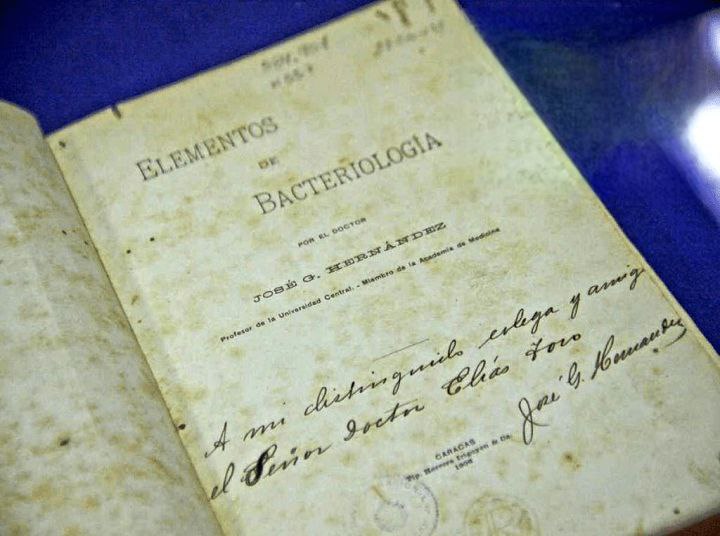 ELEMENTOS
DE
BACTERIOLOGÍA
POR EL DOCTOR
JOSÉ G. HERNÁNDEZ
Profesor de la Universidad Central. - Miembro de la Academia de Medicina
A mi distinguido colega y amig
el Señor doctor Elías Toro
José G. Hernández
CARACAS
Tip. Herrera Irigoyen & Ca.
1906